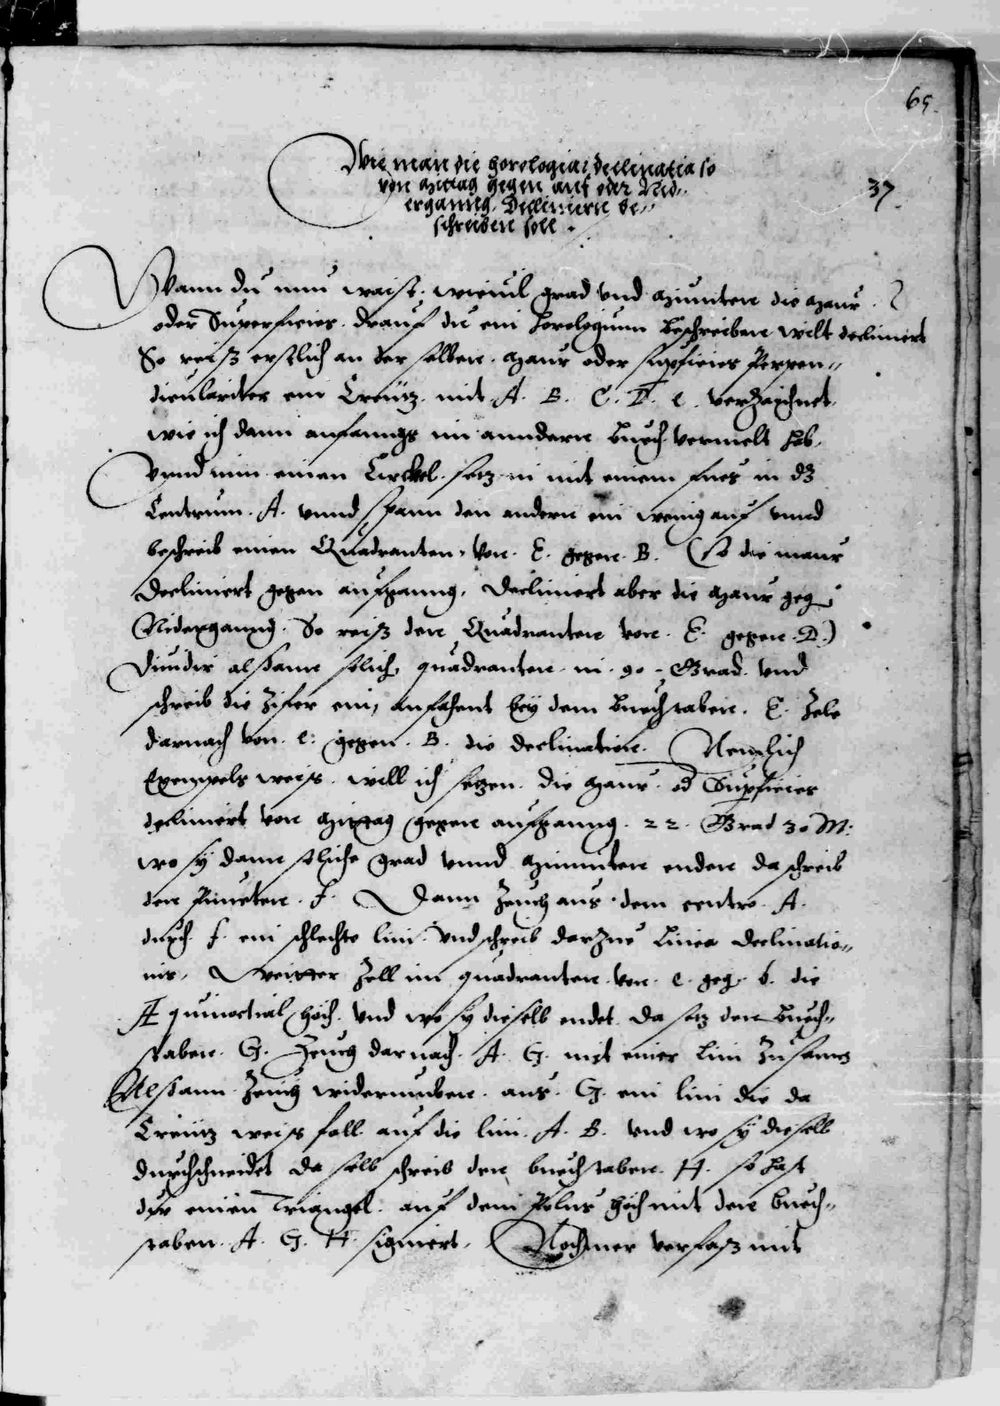 65.
Wie man die horologia declinatia so
von Mittag gegen auf oder Nid-
erganng. Declinieren be-
schreiben soll.
37.
Wann du nun waist. wieuil grad vnd Minuten die Maur
oder Superficies. drauf du ein horologium beschreiben wilt decliniert
So reiß erstlich an der selben. Maur oder supficies Perpen-
diculariter ein Creütz. mit. A. B. C. D. E. verzaichnet.
wie ich dann anfanngs im anndern buech vermelt hab.
Vnnd nim einen Circkel. setz in mit einem fues in dz
Centrum. A. vnnd spann den andern ein wenig auf vnnd
beschreib einen Quadranten. von. E. gegen. B. (So die maur
decliniert gegen aufganng. decliniert aber die Maur geg
Niderganng. So reiß den Quadranten von. E. gegen. D.)
Diuidir alßdann solich. quadranten. in. 90. Grad. vnd
schreib die Zifer ein, anfahent bey dem buechstaben. E. Zele
darnach von. e. gegen. B. die declination. Nemlich
Exempels weis. will ich setzen. die Maur. od Supficies
decliniert von Mittag gegen aufganng. 22. Grad 30 M:
wo sy dann soliche grad vnnd Minuten enden da schreib
den Puncten. F. Dann Zeuch aus. dem centro. A.
durch. f. ein schlechte lini. vnd schreib darzue Linea declinatio-
nis. Weitter Zell im quadranten. von. e. geg. b. die
Æquinoctial höch. vnd wo sy dieselb endet. da setz den buech-
staben. G. Zeuch darnach. A. G. mit einer lini Zusamen
Alßdann. Zeuch widerumben. aus. G. ein lini die da
Creütz weiss fall. auf die lini. A. B. vnd wo sy dieselb
durchschneidet da selb schreib den buechstaben. H. so hast
du einen Triangel. auf dein Polus höch mit den buech-
staben. A. G. H. signiert. Nochmer verfass mit